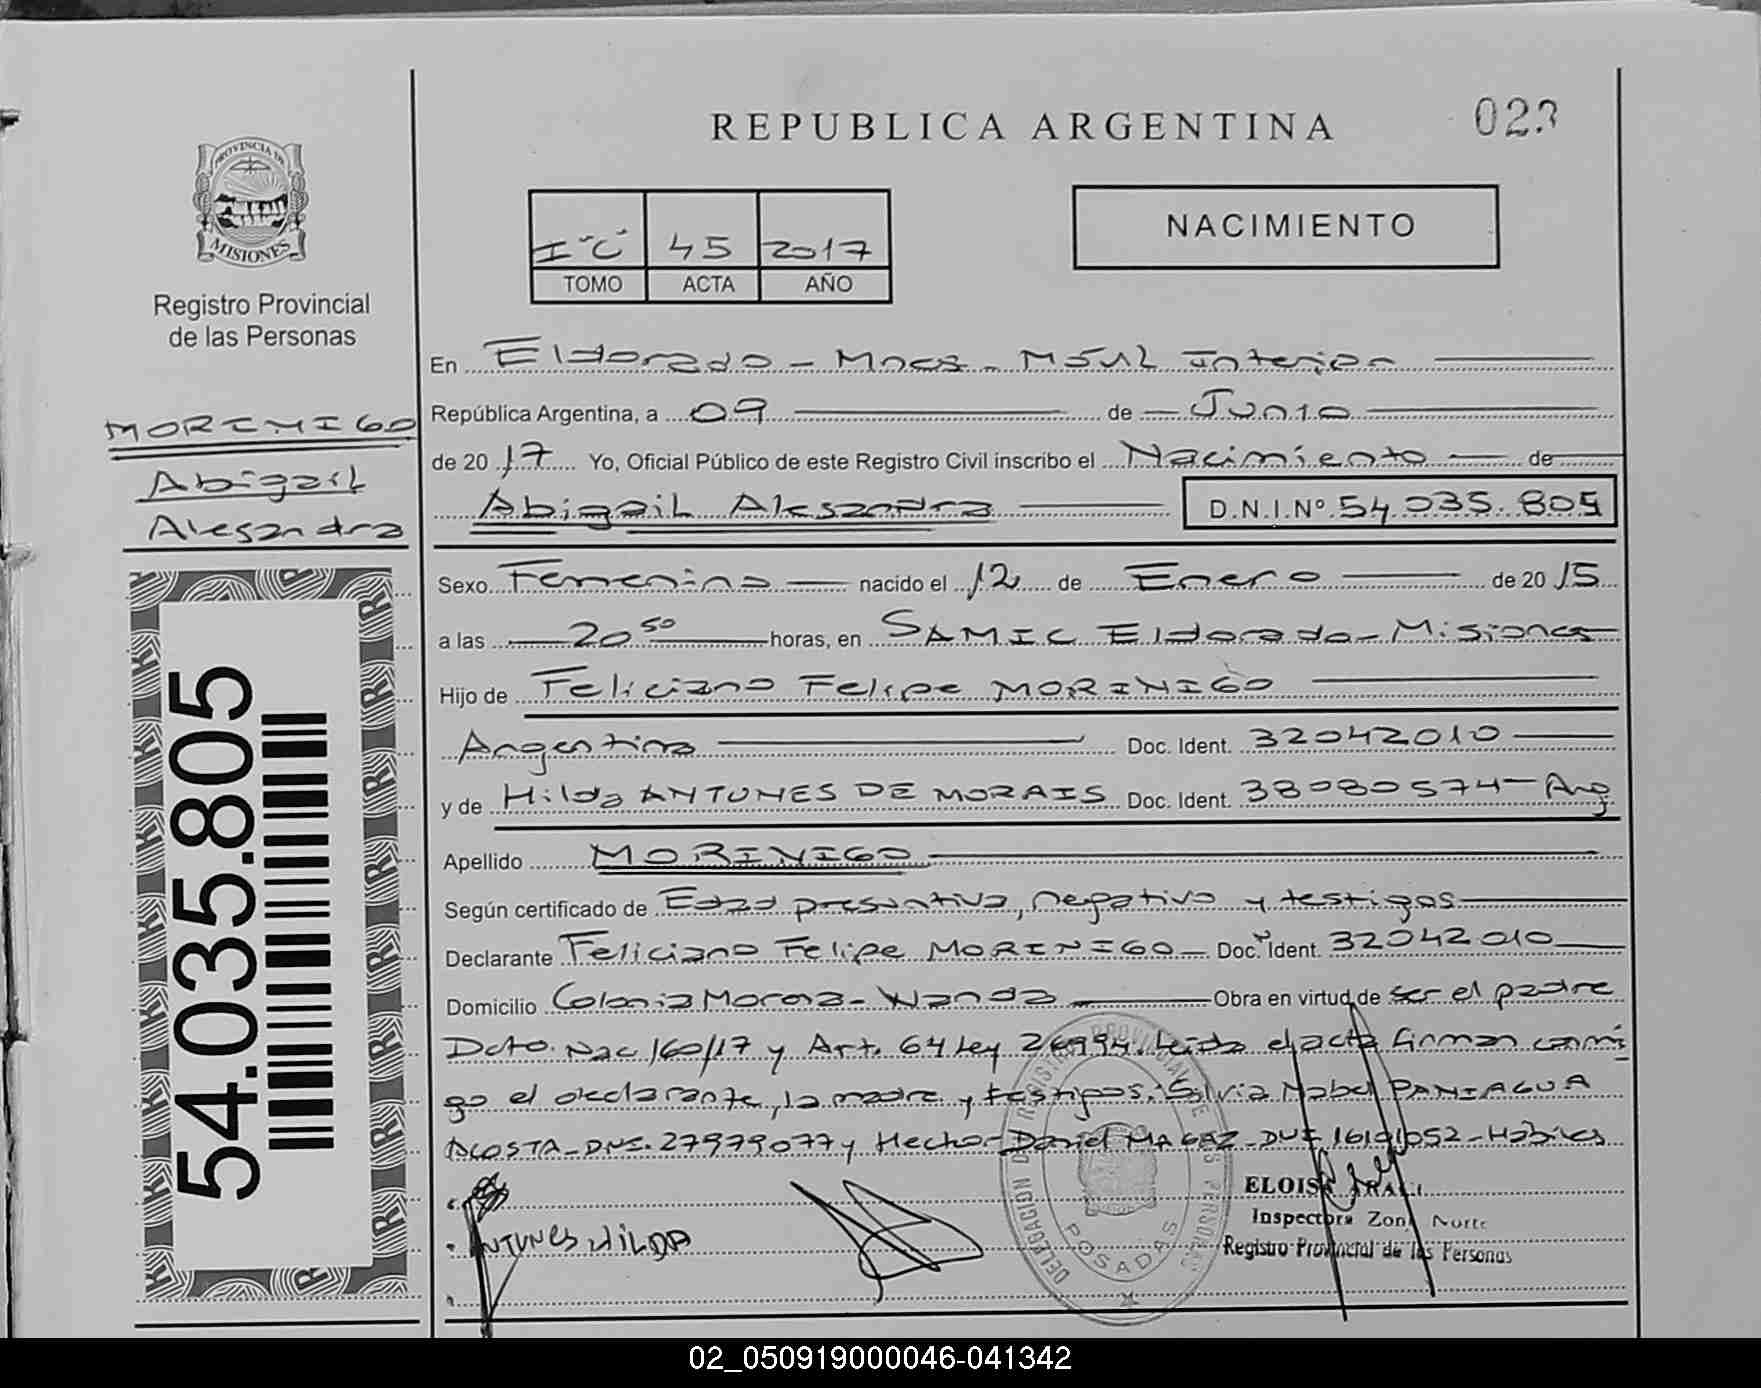 REPUBLICA ARGENTINA
023
PROVINCIA DE
MISIONES
Registro Provincial
de las Personas
I "C" 45 2017
TOMO ACTA AÑO
NACIMIENTO
MORINIGO
Abigail
Alesandra
54.035.805
En Eldorado - Mnes - Móvil Interior
República Argentina, a 09 de Junio
de 2017 Yo, Oficial Público de este Registro Civil inscribo el Nacimiento de
Abigail Alesandra D.N.I.Nº 54.035.805
Sexo Femenino nacido el 12 de Enero de 2015
a las 20 50 horas, en SAMIC Eldorado - Misiones
Hijo de Feliciano Felipe MORINIGO
Argentina Doc. Ident. 32042010
y de Hilda ANTUNES DE MORAIS Doc. Ident. 38080574 - Arg
Apellido MORINIGO
Según certificado de Edad presuntiva, negativo y testigos
Declarante Feliciano Felipe MORINIGO - Doc. Ident. 32042010
Domicilio Colonia - Wanda Obra en virtud de ser el padre
Dcto. Nac 160/17 y Art. 64 Ley 26994. Leida el acta firman conmi
go el declarante, la madre y testigos: Silvia Mabel PANIAGUA
ACOSTA - DNI. 27979077 y Hector Daniel - DNI 16101052 - Hábiles
ANTUNES HILDA
DELEGACION
POSADAS
ELOISA
Inspectora Zona Norte
Registro Provincial de las Personas
02_050919000046-041342